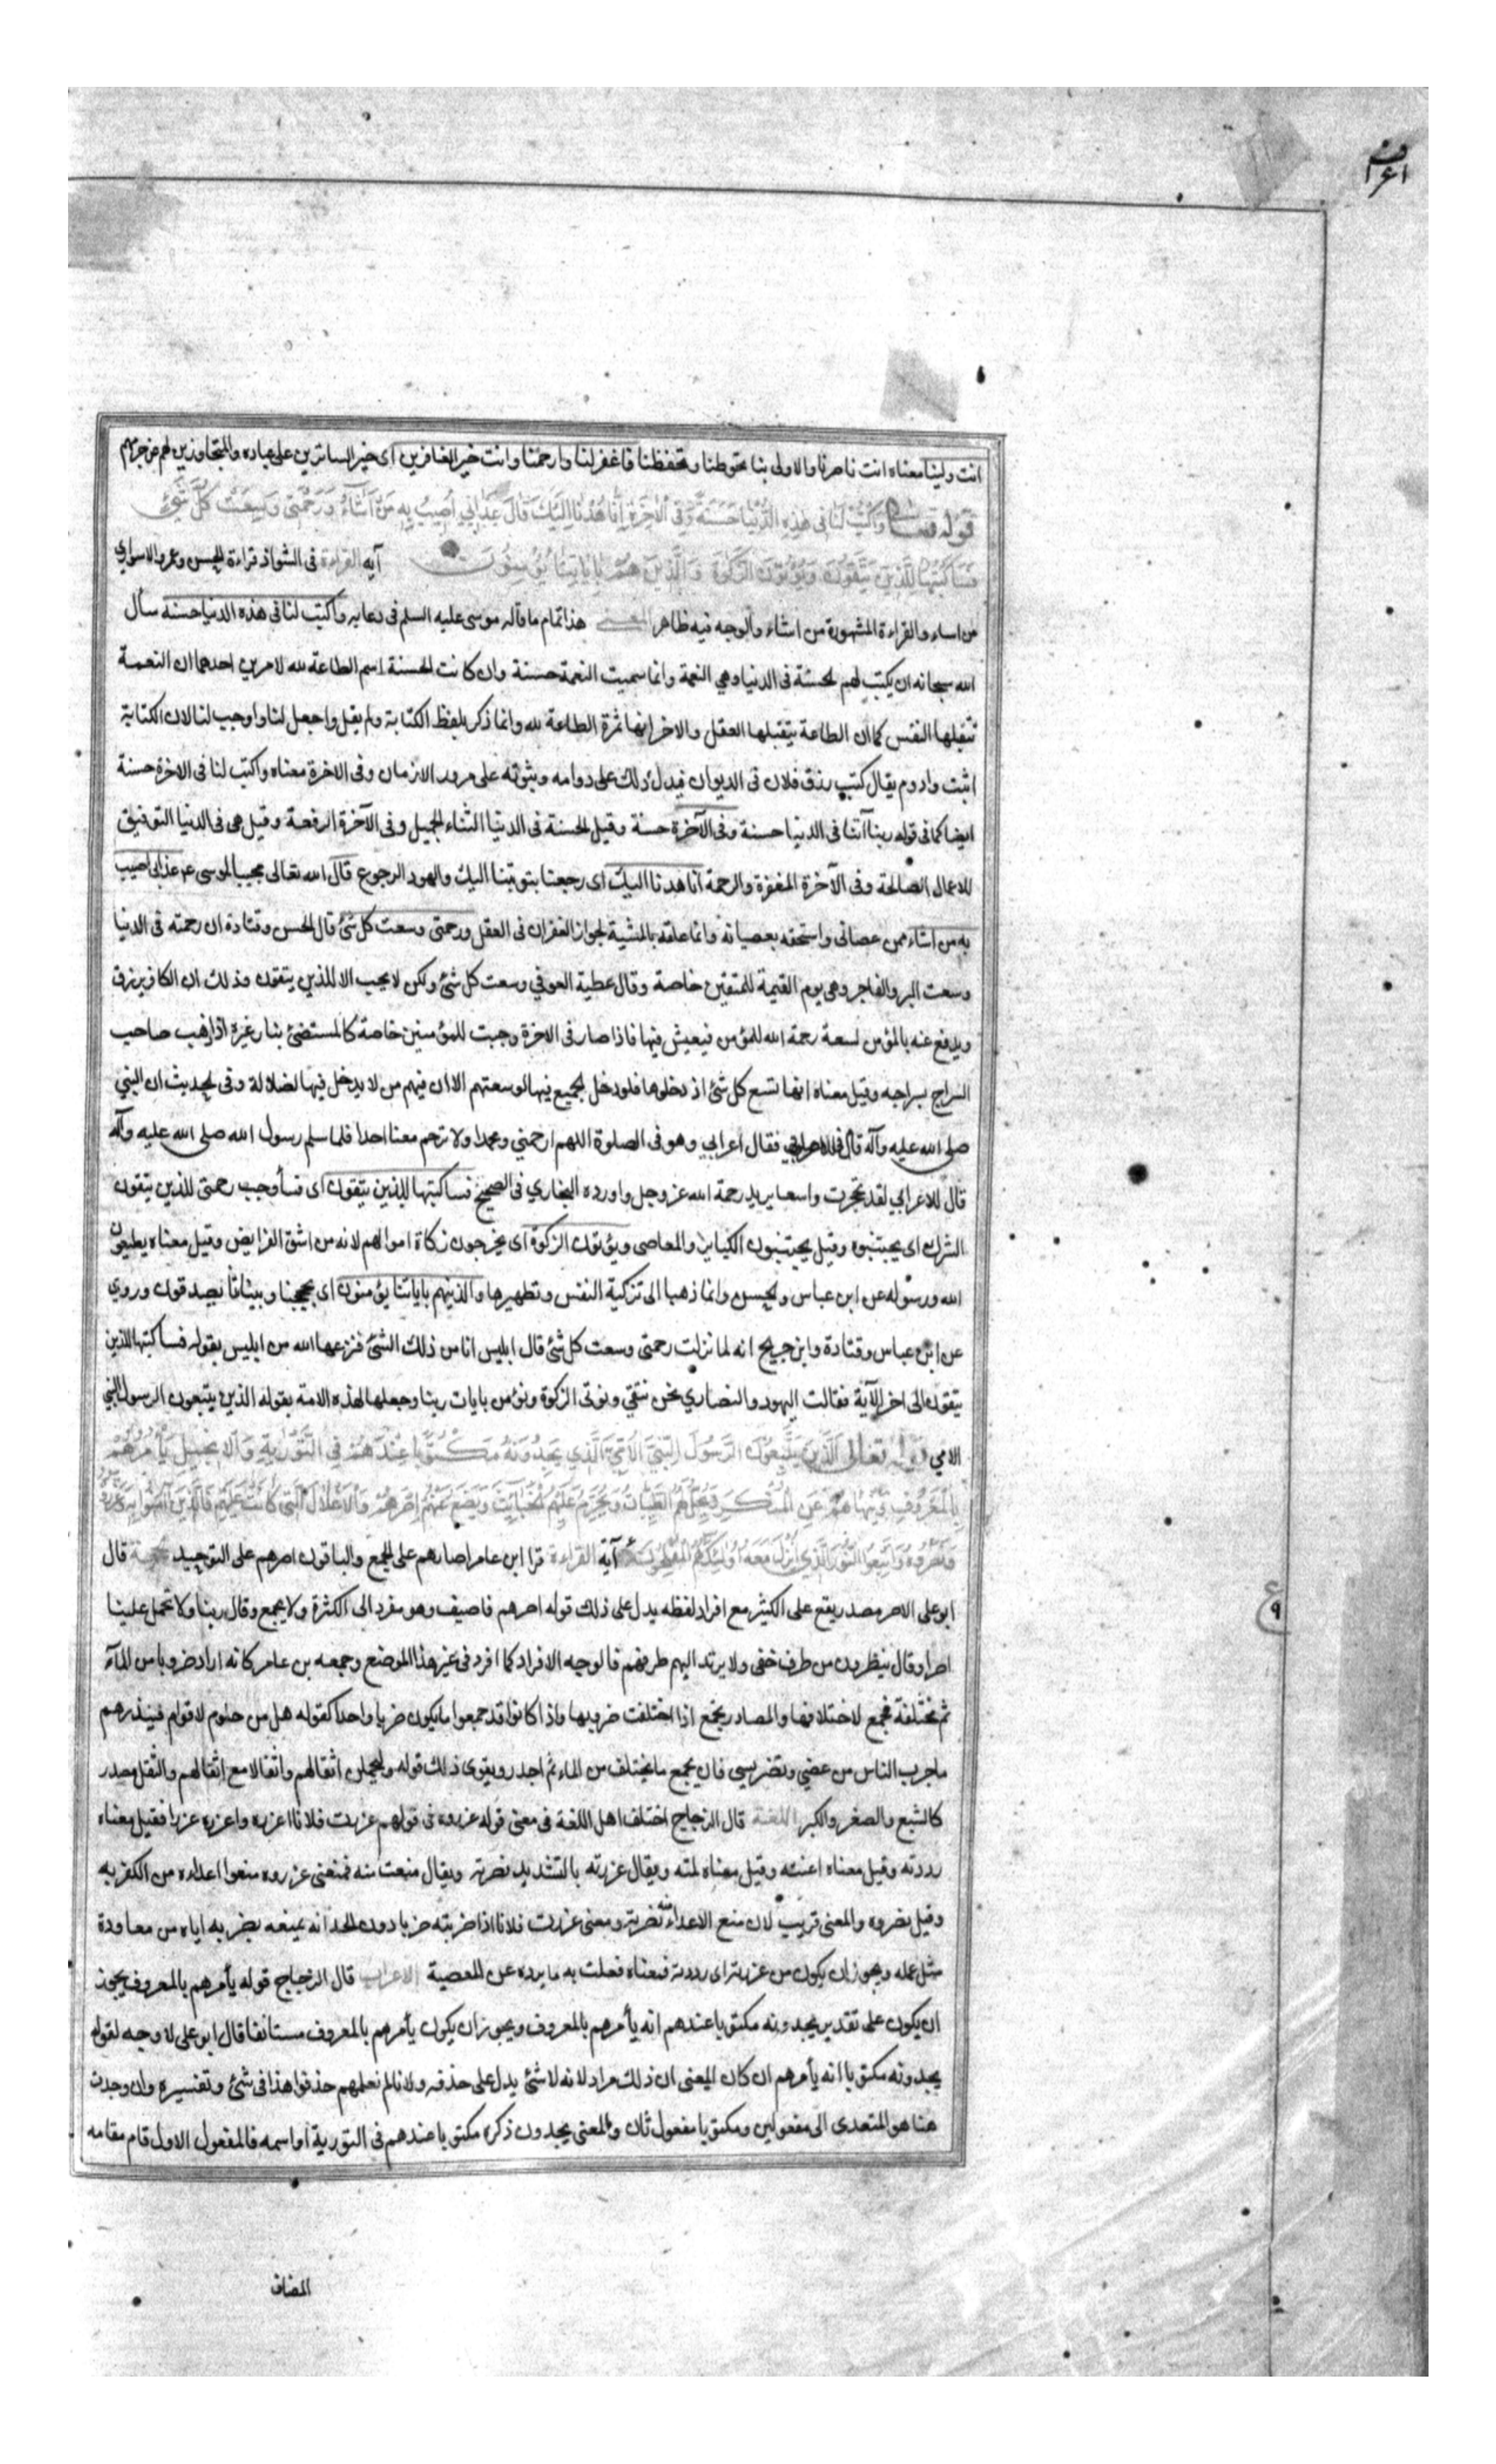 اعراف
انت ولينا معناه انت ناصرنا والاولى بنا تحوطنا وتحفظنا فاغفر لنا وارحمنا وانت خير الغافرين اى خير الساترين على عباده والمتجاوزين لهم عن جرمهم
قوله تعالى وَاكْتُبْ لَنَا فِى هٰذِهِ الدُّنْيَا حَسَنَةً وَفِى الْاٰخِرَةِ اِنَّا هُدْنَا اِلَيْكَ قَالَ عَذَابِى اُصِيبُ بِهِ مَنْ اَشَاءُ وَرَحْمَتِى وَسِعَتْ كُلَّ شَىْءٍ
فَسَاَكْتُبُهَا لِلَّذِينَ يَتَّقُونَ وَيُؤْتُونَ الزَّكٰوةَ وَالَّذِينَ هُمْ بِاٰيَاتِنَا يُؤْمِنُونَ آية القراءة فى الشواذ قراءة الحسن وعمرو الاسوارى
من اساء والقراءة المشهورة من اشاء والوجه فيه ظاهر المعنى هذا تمام ما قاله موسى عليه السلم فى دعايه واكتب لنا فى هذه الدنيا حسنة سأل
الله سبحانه ان يكتب لهم الحسنة فى الدنيا وهى النعمة وانما سميت النعمة حسنة وان كانت الحسنة اسم الطاعة لله لامرين احدهما ان النعمة
تتقبلها النفس كما ان الطاعة يتقبلها العقل والاخر انها ثمرة الطاعة لله وانما ذكر بلفظ الكتابة ولم يقل واجعل لنا واوجب لنا لان الكتابة
اثبت وادوم يقال كتب رزق فلان فى الديوان فيدل ذلك على دوامه وثبوته على مرور الازمان وفى الاخرة معناه واكتب لنا فى الاخرة حسنة
ايضا كما فى قوله ربنا آتنا فى الدنيا حسنة وفى الآخرة حسنة وقيل الحسنة فى الدنيا الثناء الجميل وفى الآخرة الرفعة وقيل هى فى الدنيا التوفيق
للاعمال الصالحة وفى الآخرة المغفرة والرحمة انا هدنا اليك اى رجعنا بتوبتنا اليك والهود الرجوع قال الله تعالى مجيبا لموسى عم عذابى اصيب
به من اشاء ممن عصانى واستحقه بعصيانه وانما علقه بالمشية لجواز الغفران فى العقل ورحمتى وسعت كل شئ قال الحسن وقتادة ان رحمته فى الدنيا
وسعت البر والفاجر وهى يوم القيمة للمتقين خاصة وقال عطية العوفي وسعت كل شئ ولكن لا يجب الا للذين يتقون وذلك ان الكافر يرزق
ويدفع عنه بالمؤمن لسعة رحمة الله للمؤمن فيعيش فيها فاذا صار فى الاخرة وجبت للمؤمنين خاصة كالمستضئ بنار غيره اذا ذهب صاحب
السراج بسراجه وقيل معناه انها تسع كل شئ اذ دخلوها فلو دخل الجميع فيها لوسعتهم الا ان فيهم من لا يدخل فيها لضلالة وفى الحديث ان النبي
صلى الله عليه وآله قال فقال اعرابي وهو فى الصلوة اللهم ارحمني ومحمدا ولا ترحم معنا احدا فلما سلم رسول الله صلى الله عليه وآله
قال للاعرابي لقد تحجرت واسعا يريد رحمة الله عز وجل واورده البخاري فى الصحيح فساكتبها للذين يتقون اى فسأوجب رحمتى للذين يتقون
الشرك اى يجتنبوه وقيل يجتنبون الكباير والمعاصى ويؤتون الزكوة اى يخرجون زكاة اموالهم لانه من اشق الفرايض وقيل معناه يطيعون
الله ورسوله عن ابن عباس والحسن وانما ذهبا الى تزكية النفس وتطهيرها والذينهم باياتنا يؤمنون اى بحججنا وبيناتنا يصدقون وروي
عن ابن عباس وقتادة وابن جريج انه لما نزلت رحمتى وسعت كل شئ قال ابليس انا من ذلك الشئ فنزعها الله من ابليس بقوله فساكتبها للذين
يتقون الى اخر الآية فقالت اليهود والنصاري نحن نتقي ونوتى الزكوة ونؤمن بايات ربنا وجعلها لهذه الامة بقوله الذين يتبعون الرسول النبي
الامي قوله تعالى اَلَّذِينَ يَتَّبِعُونَ الرَّسُولَ النَّبِىَّ الْاُمِّىَّ الَّذِى يَجِدُونَهُ مَكْتُوبًا عِنْدَهُمْ فِى التَّوْرٰيةِ وَالْاِنْجِيلِ يَأْمُرُهُمْ
بِالْمَعْرُوفِ وَيَنْهٰيهُمْ عَنِ الْمُنْكَرِ وَيُحِلُّ لَهُمُ الطَّيِّبَاتِ وَيُحَرِّمُ عَلَيْهِمُ الْخَبَائِثَ وَيَضَعُ عَنْهُمْ اِصْرَهُمْ وَالْاَغْلَالَ الَّتِى كَانَتْ عَلَيْهِمْ فَالَّذِينَ اٰمَنُوا بِهِ وَعَزَّرُوهُ
وَنَصَرُوهُ وَاتَّبَعُوا النُّورَ الَّذِى اُنْزِلَ مَعَهُ اُولٰئِكَ هُمُ الْمُفْلِحُونَ آية القراءة قرا ابن عامر اصارهم على الجمع والباقون اصرهم على التوحيد الحجة قال
ابو على الاصر مصدر يقع على الكثير مع افراد لفظه يدل على ذلك قوله اصرهم فاضيف وهو مفرد الى الكثرة ولا يجمع وقال ربنا ولا تحمل علينا
اصرا وقال ينظرون من طرف خفى ولا يرتد اليهم طرفهم فالوجه الافراد كما افرد فى غير هذا الموضع وجمعه بن عامر كانه اراد ضروبا من المآثم
مختلفة فجمع لاختلافها والمصادر يجمع اذا اختلفت ضروبها واذا كانوا قد جمعوا ما يكون ضربا واحدا كقوله هل من حلوم لاقوام فينذرهم
ما جرب الناس من عضي وتضريسى فان يجمع ما يختلف من الماثم اجدر ويقوى ذلك قوله وليحملن اثقالهم واثقالا مع اثقالهم والثقل مصدر
كالشبع والصغر والكبر اللغة قال الزجاج اختلف اهل اللغة فى معنى قوله عزروه فى قولهم عزرت فلانا اعزره واعزره عزرا فقيل معناه
رددته وقيل معناه اعنته وقيل معناه لمته ويقال عزرته بالتشديد نصرته ويقال منعت منه فمعنى عزروه منعوا اعداءه من الكفر به
وقيل نصروه والمعنى قريب لان منع الاعداء منه نصرته ومعنى عزرت فلانا اذا ضربته ضربا دون الحد انه يمنعه بضربه اياه من معاودة
مثل عمله ويجوز ان يكون من عزرته اى رددته فمعناه فعلت به ما يرده عن المعصية الاعراب قال الزجاج قوله يأمرهم بالمعروف يجوز
ان يكون على تقدير يجدونه مكتوبا عندهم انه يأمرهم بالمعروف ويجوز ان يكون يأمرهم بالمعروف مستانفا قال ابو على لا وجه لقوله
يجدونه مكتوبا انه يأمرهم ان كان المعنى ان ذلك مراد لانه لا شئ يدل على حذفه ولانا لم نعلمهم حذفوا هذا فى شئ وتفسيره وان وجدت
هنا هو المتعدى الى مفعولين ومكتوبا مفعول ثان والمعنى يجدون ذكره مكتوبا عندهم فى التورية او اسمه فالمفعول الاول قام مقامه
المضاف